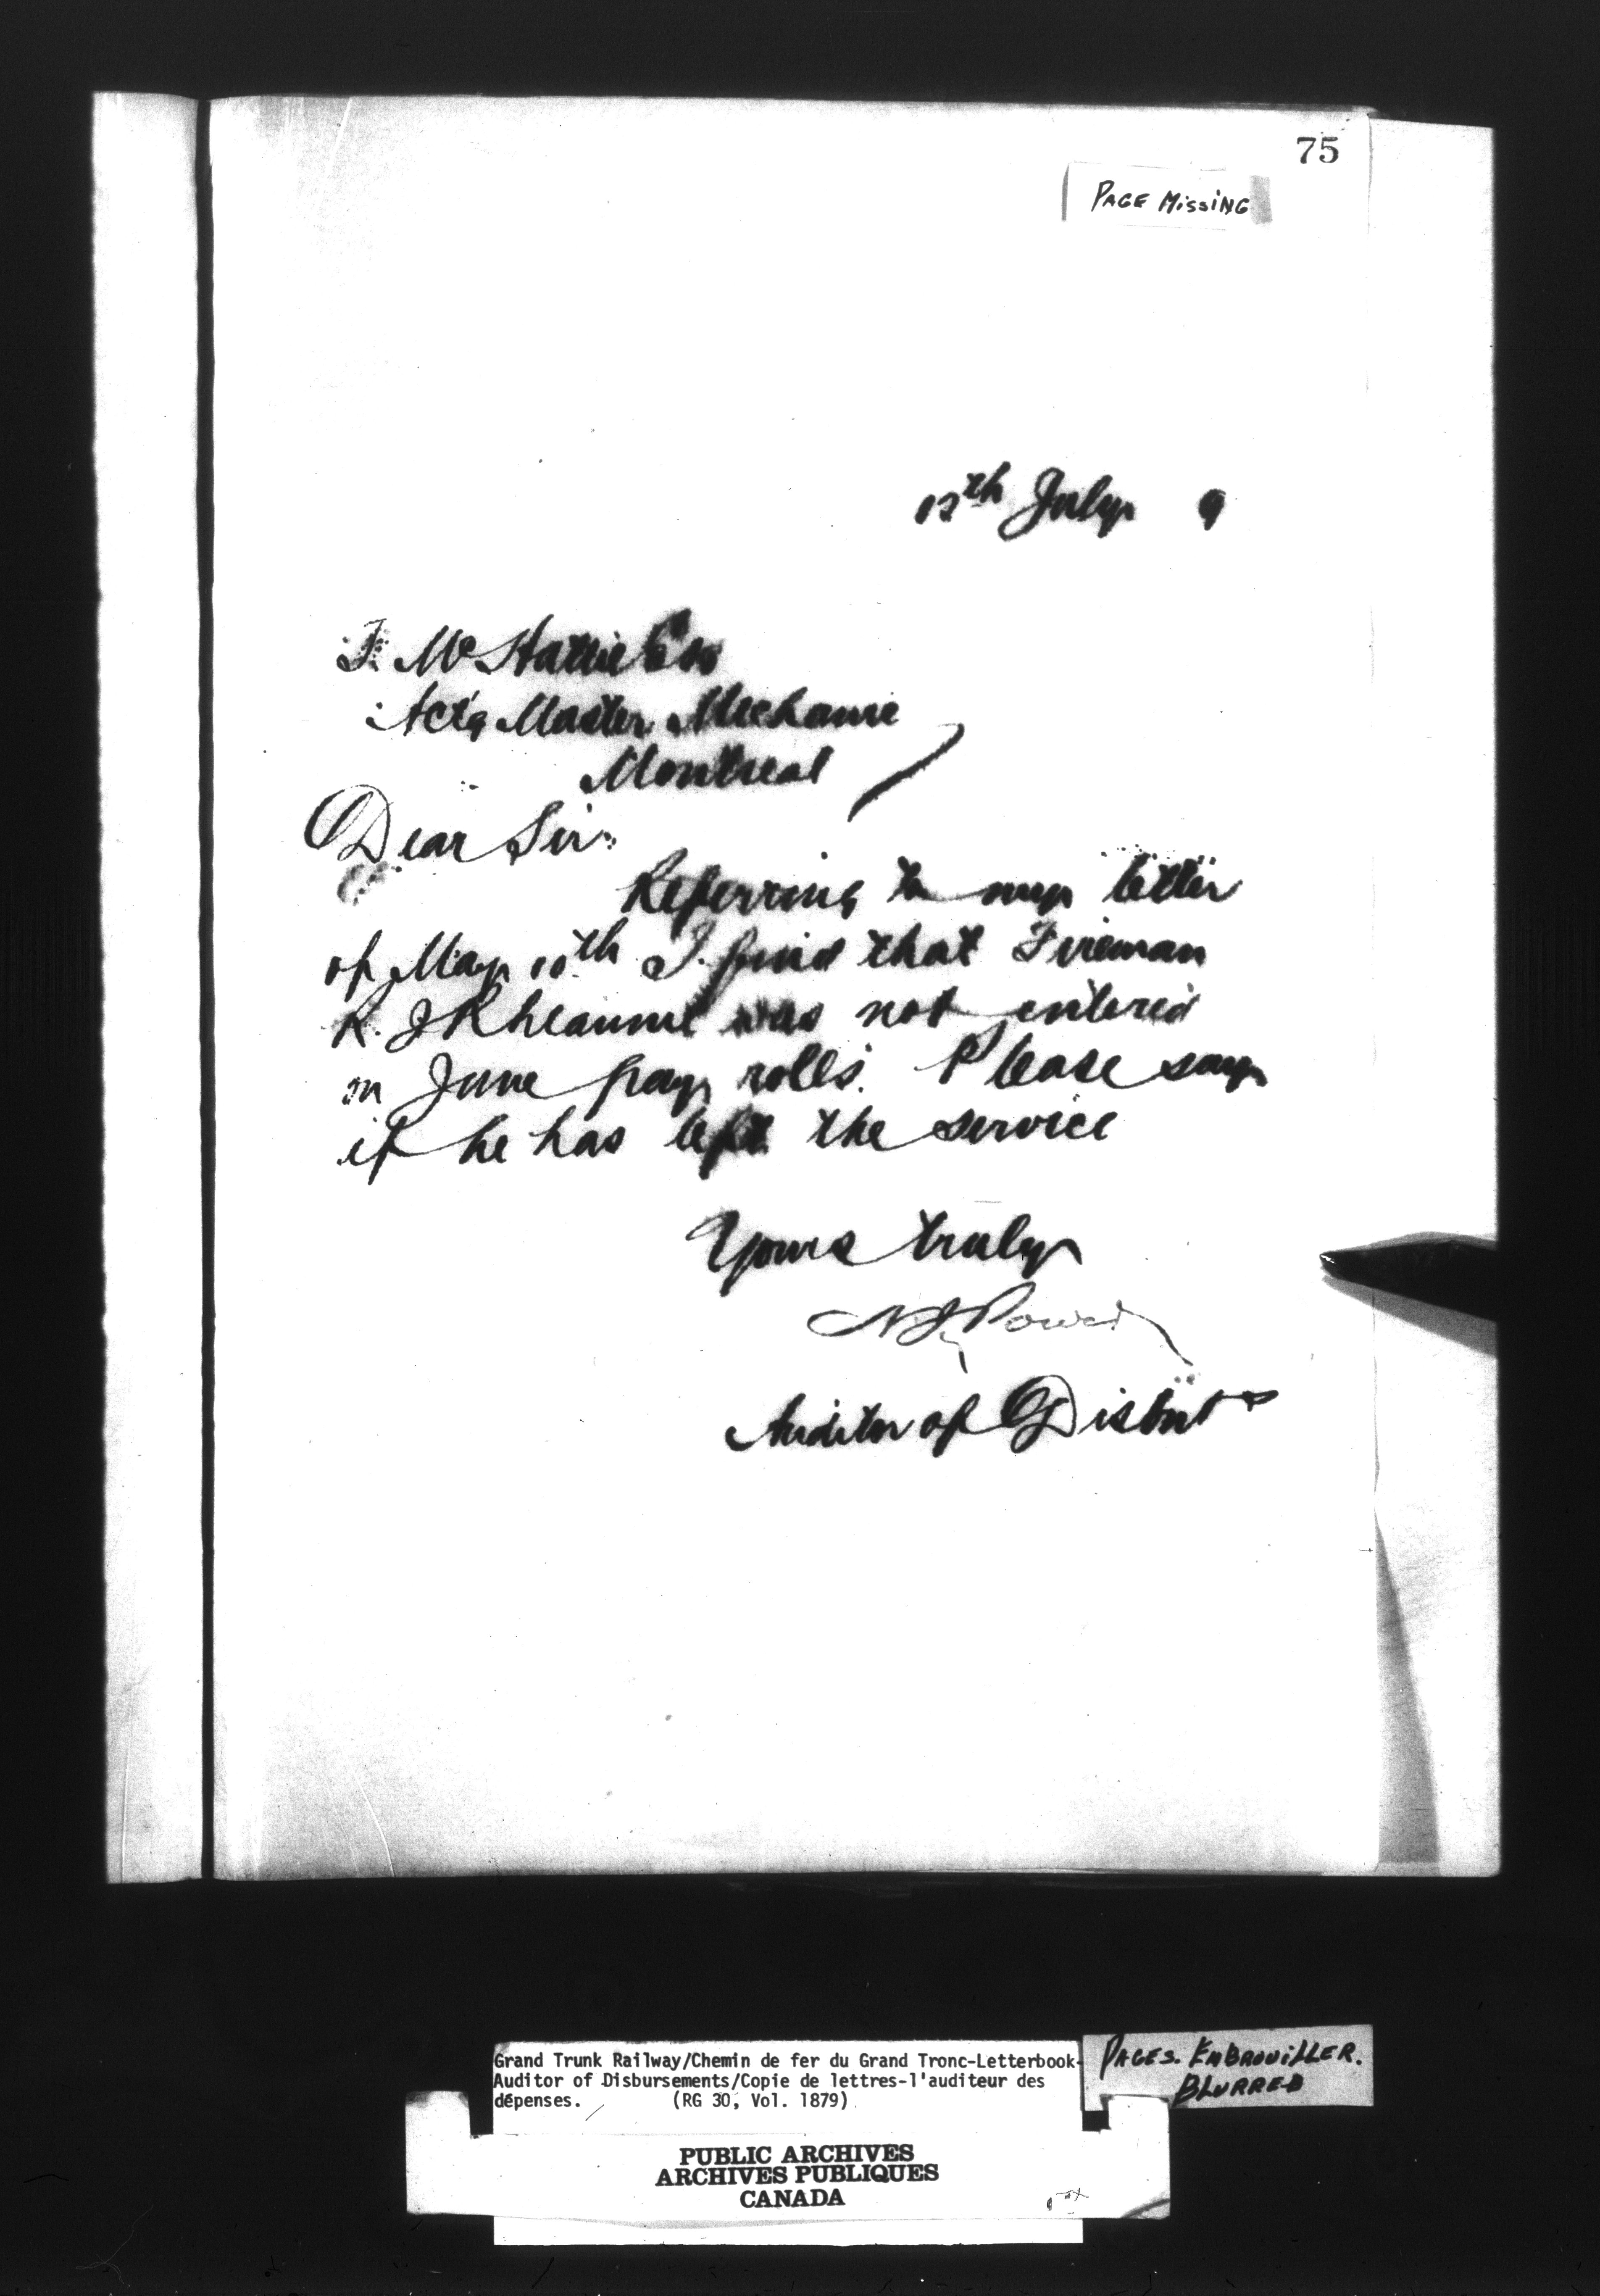 75
PAGE MISSING
12th July 9
F. McHattie Esq
Act'g Master Mechanic
Montreal
Dear Sir:
Referring to my letter
of May 10th I find that Fireman
R. J Rheaume was not entered
in June pay rolls. Please say
if he has left the service
Yours truly
N J Power
Auditor of Disbmts
Grand Trunk Railway/Chemin de fer du Grand Tronc-Letterbook-
Auditor of Disbursements/Copie de lettres-l'auditeur des
dépenses. (RG 30, Vol. 1879)
PAGES. EMBROUILLER.
BLURRED
PUBLIC ARCHIVES
ARCHIVES PUBLIQUES
CANADA